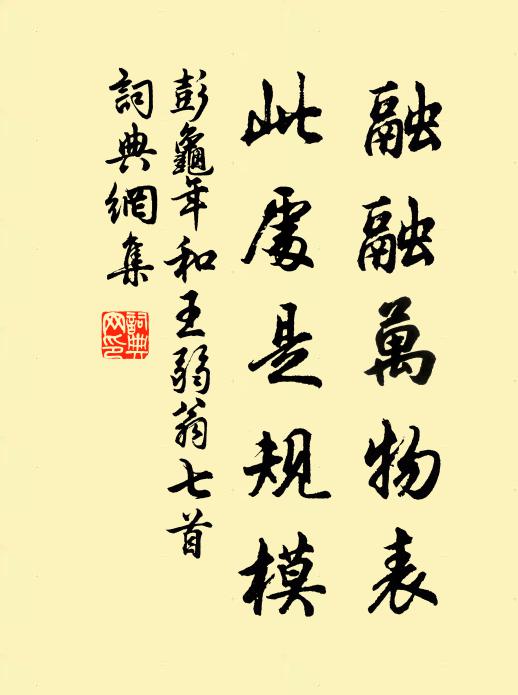 融融萬物表
此處是規模
彭龜年和王弱翁七首
詞典網集
詞典網印